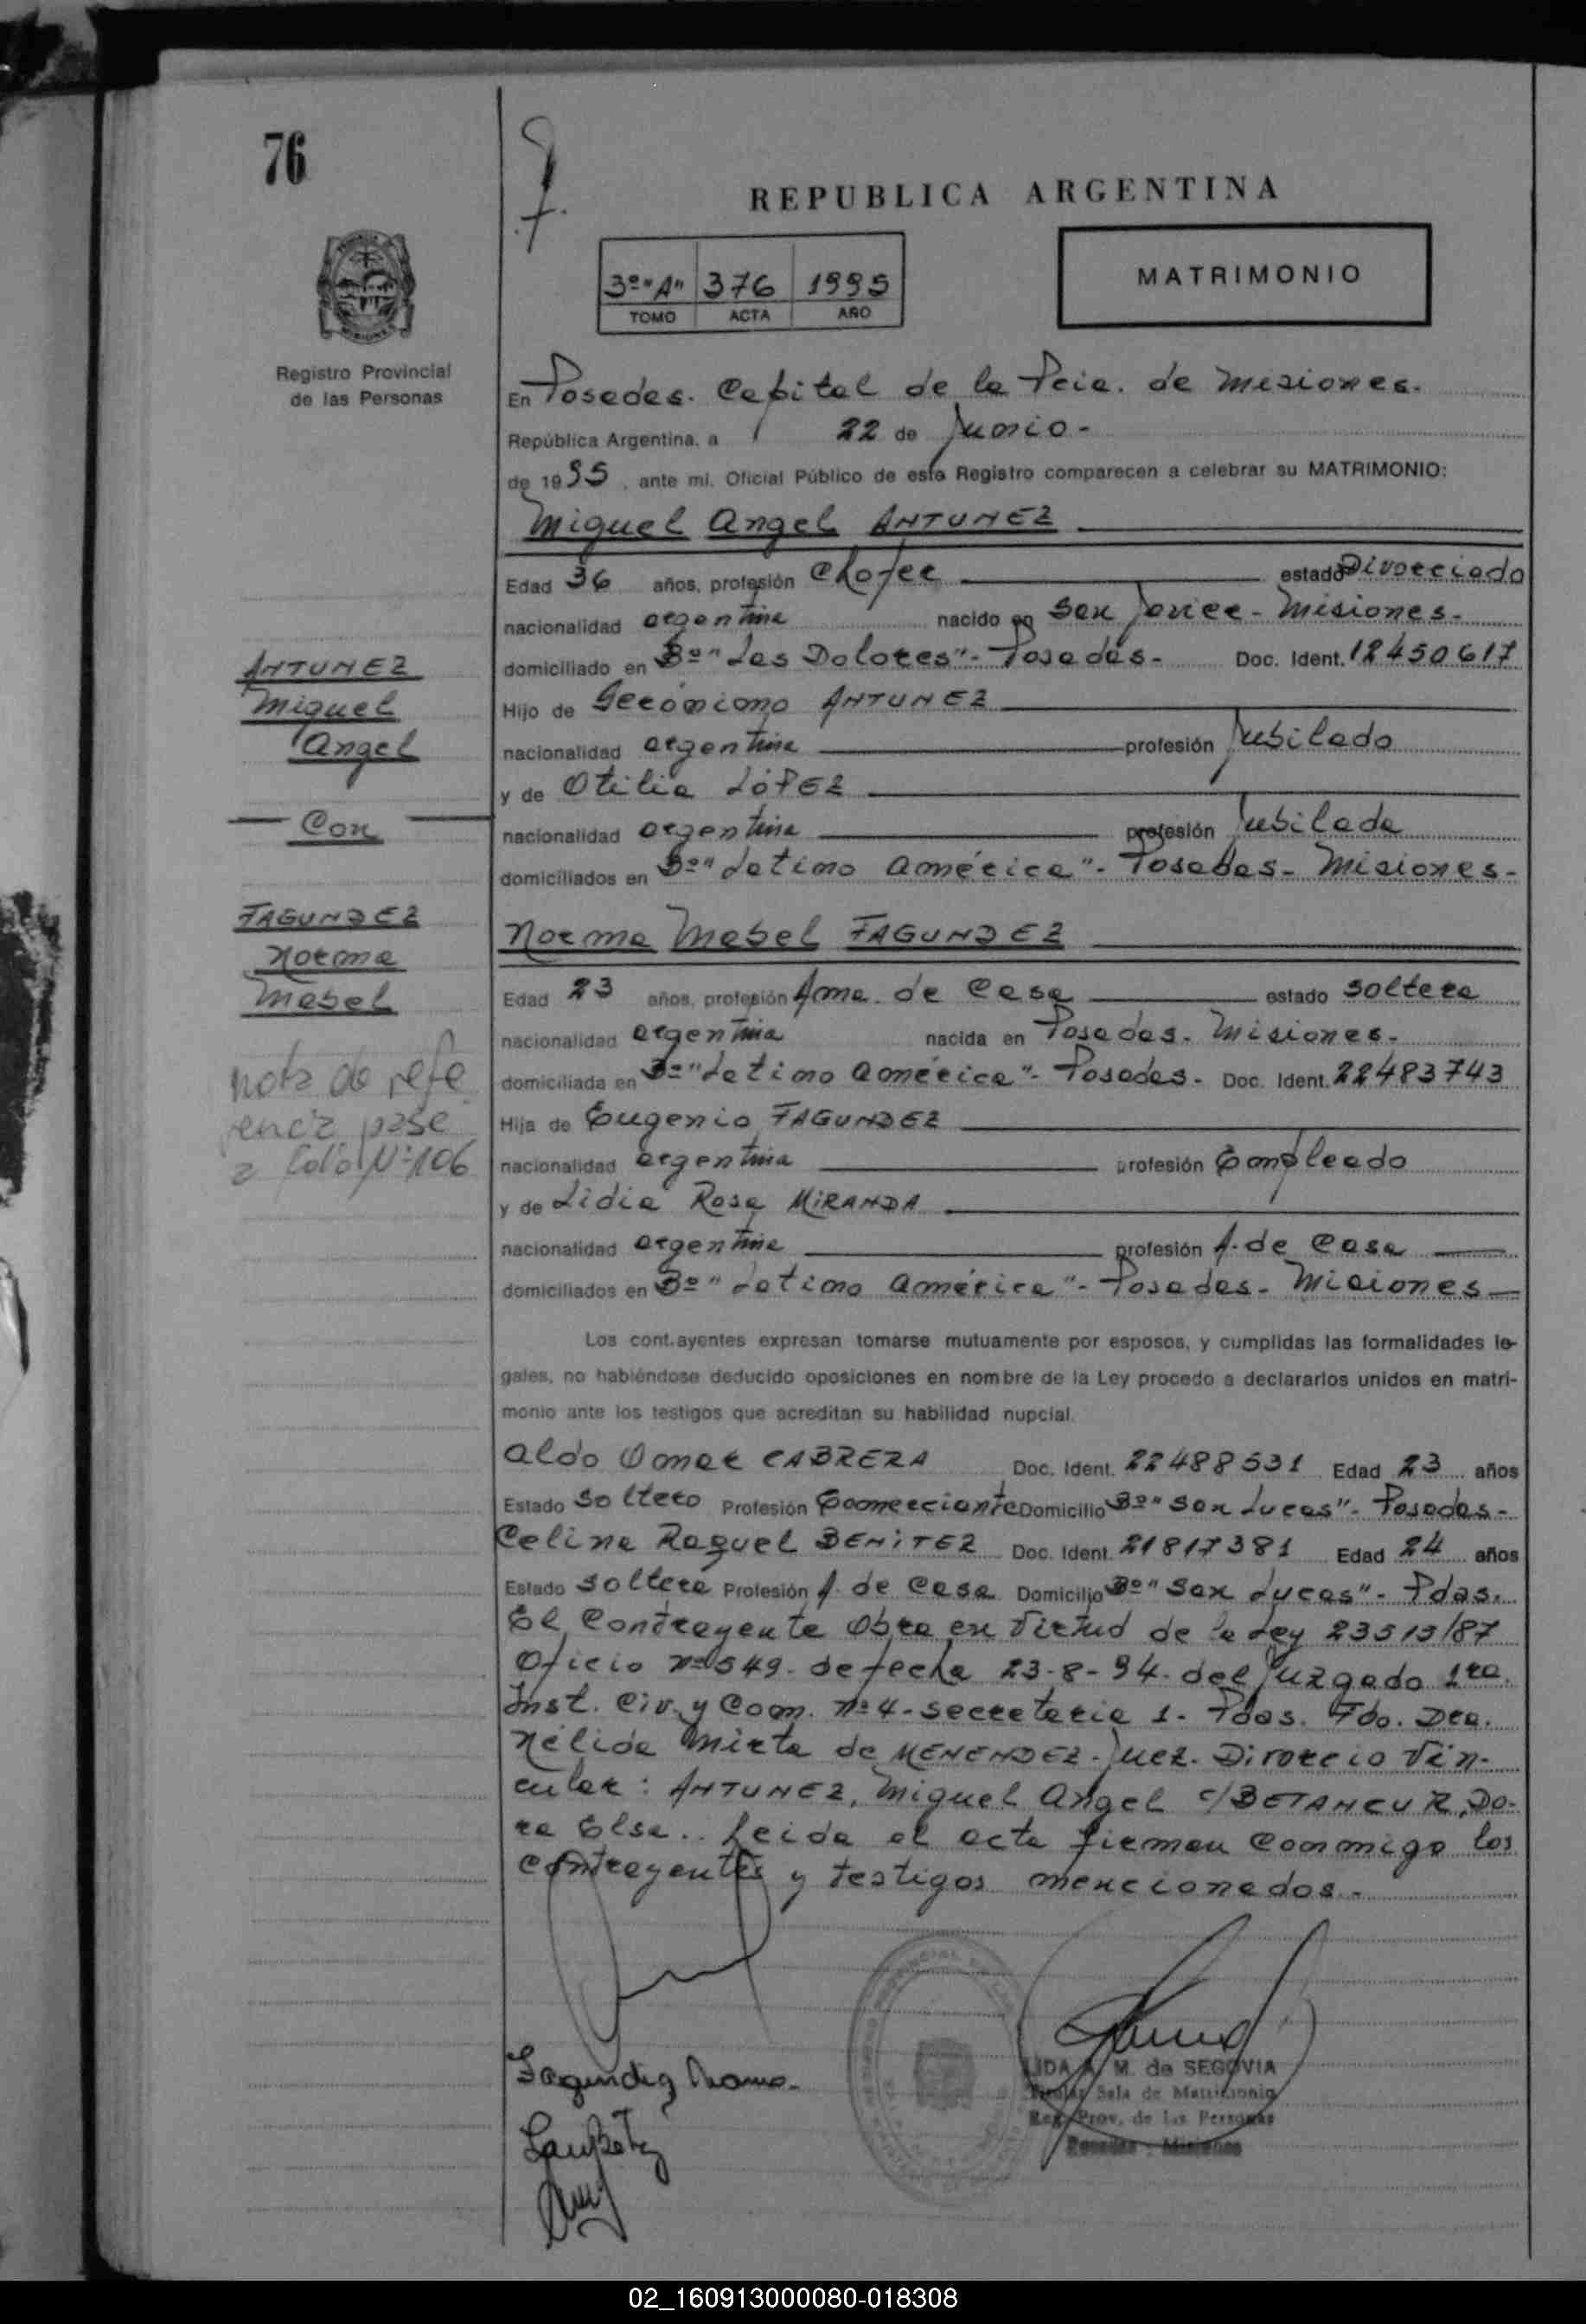 76
REPUBLICA ARGENTINA
3º "A" 376 1995
TOMO ACTA AÑO
MATRIMONIO
Registro Provincial
de las Personas
En Posadas. Capital de la Pcia. de Misiones.
República Argentina, a 22 de Junio -
de 1995, ante mi, Oficial Público de este Registro comparecen a celebrar su MATRIMONIO:
Miguel Angel ANTUNEZ
Edad 36 años, profesión Chofer estado Divorciado
nacionalidad argentina nacido en San Javier - Misiones -
domiciliado en Bº "Las Dolores" - Posadas - Doc. Ident. 12450617
Hijo de Gerónimo ANTUNEZ
nacionalidad argentina profesión Jubilado
y de Otilia LÓPEZ
nacionalidad argentina profesión Jubilada
domiciliados en Bº "Latino América" - Posadas - Misiones -
ANTUNEZ
Miguel
Angel
Con
FAGUNDEZ
Norma
Mabel
nota de refe
rencia pase
a folio Nº 106
Norma Mabel FAGUNDEZ
Edad 23 años, profesión Ama de Casa estado soltera
nacionalidad argentina nacida en Posadas - Misiones -
domiciliada en Bº "Latino América" - Posadas - Doc. Ident. 22483743
Hija de Eugenio FAGUNDEZ
nacionalidad argentina profesión Empleado
y de Lidia Rosa MIRANDA
nacionalidad argentina profesión A. de Casa
domiciliados en Bº "Latino América" - Posadas - Misiones
Los contrayentes expresan tomarse mutuamente por esposos, y cumplidas las formalidades le-
gales, no habiéndose deducido oposiciones en nombre de la Ley procedo a declararlos unidos en matri-
monio ante los testigos que acreditan su habilidad nupcial.
Aldo Omar CABRERA Doc. Ident. 22488531 Edad 23 años
Estado soltero Profesión Comerciante Domicilio Bº "San Lucas" - Posadas -
Celina Raquel BENITEZ Doc. Ident. 21817381 Edad 24 años
Estado soltera Profesión A. de Casa Domicilio Bº "San Lucas" - Pdas.
El Contrayente Obra en Virtud de la Ley 23515/87
Oficio nº 549 - de fecha 23-8-94 - del Juzgado 1ra.
Inst. Civ. y Com. nº 4 - secretaria 1 - Pdas. Fdo. Dra.
Nélida Mirta de MENENDEZ - Juez. Divorcio Vin-
cular: ANTUNEZ, Miguel Angel c/ BETANCUR, Do-
ra Elsa.. Leida el acta firman conmigo los
contrayentes y testigos mencionados.-
Fagundez Norma.
LIDA M. de SEGOVIA
Titular Sala de Matrimonio
Reg. Prov. de las Personas
Posadas - Misiones
02_160913000080-018308